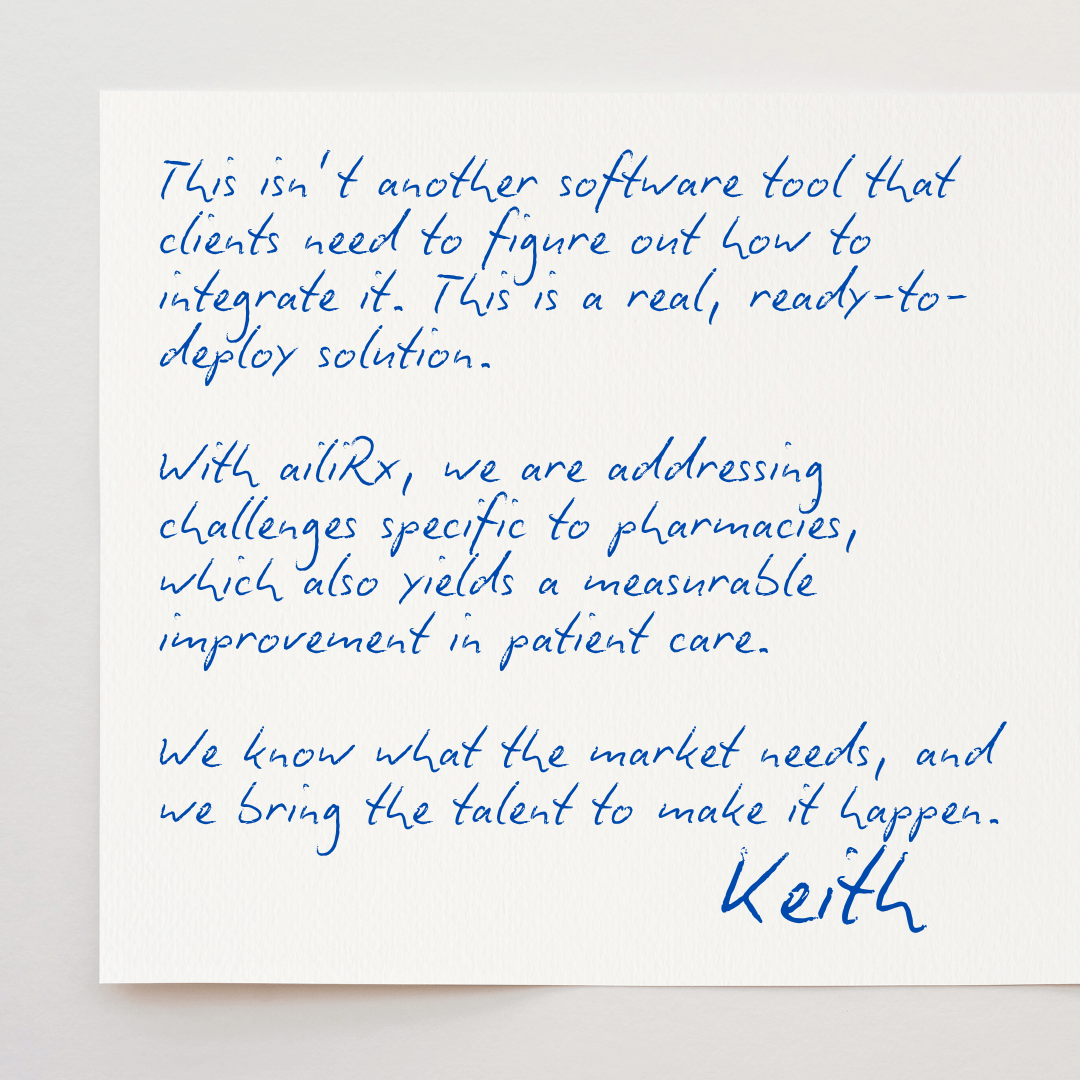 This isn't another software tool that
clients need to figure out how to
integrate it. This is a real, ready-to-
deploy solution.
With ailiRx, we are addressing
challenges specific to pharmacies,
which also yields a measurable
improvement in patient care.
We know what the market needs, and
we bring the talent to make it happen.
Keith